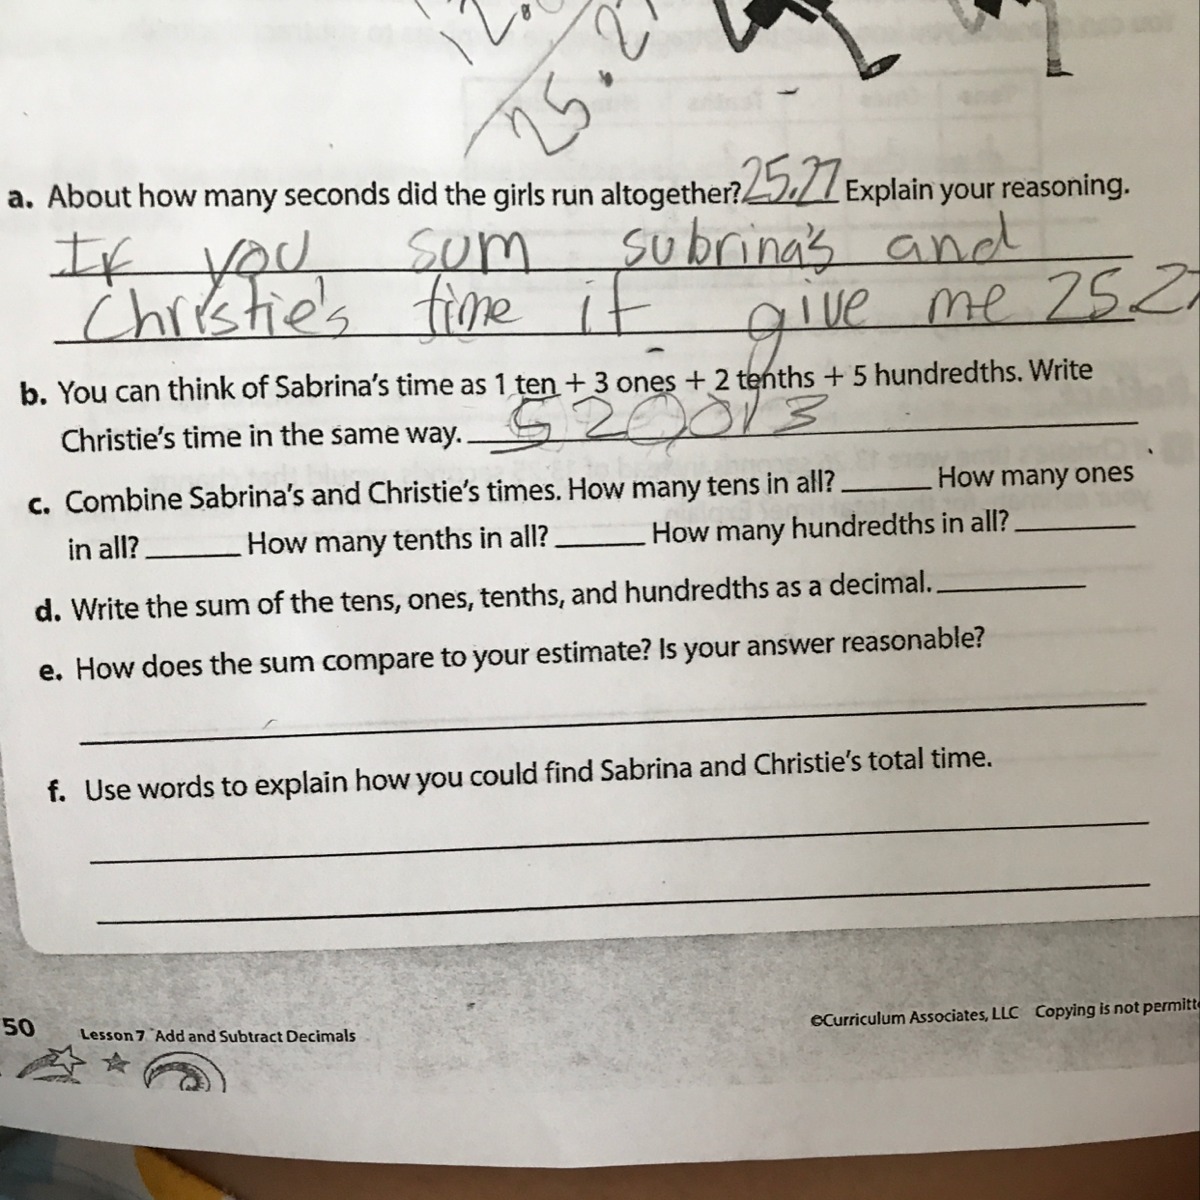 25.2
a. About how many seconds did the girls run altogether? 25.27 Explain your reasoning.
If you sum subrina's and
Christie's time it give me 25.27
b. You can think of Sabrina's time as 1 ten + 3 ones + 2 tenths + 5 hundredths. Write
Christie's time in the same way.
c. Combine Sabrina's and Christie's times. How many tens in all? ______ How many ones
in all? ______ How many tenths in all? ______ How many hundredths in all? ______
d. Write the sum of the tens, ones, tenths, and hundredths as a decimal. ______
e. How does the sum compare to your estimate? Is your answer reasonable?
f. Use words to explain how you could find Sabrina and Christie's total time.
50 Lesson 7 Add and Subtract Decimals
©Curriculum Associates, LLC Copying is not permitt